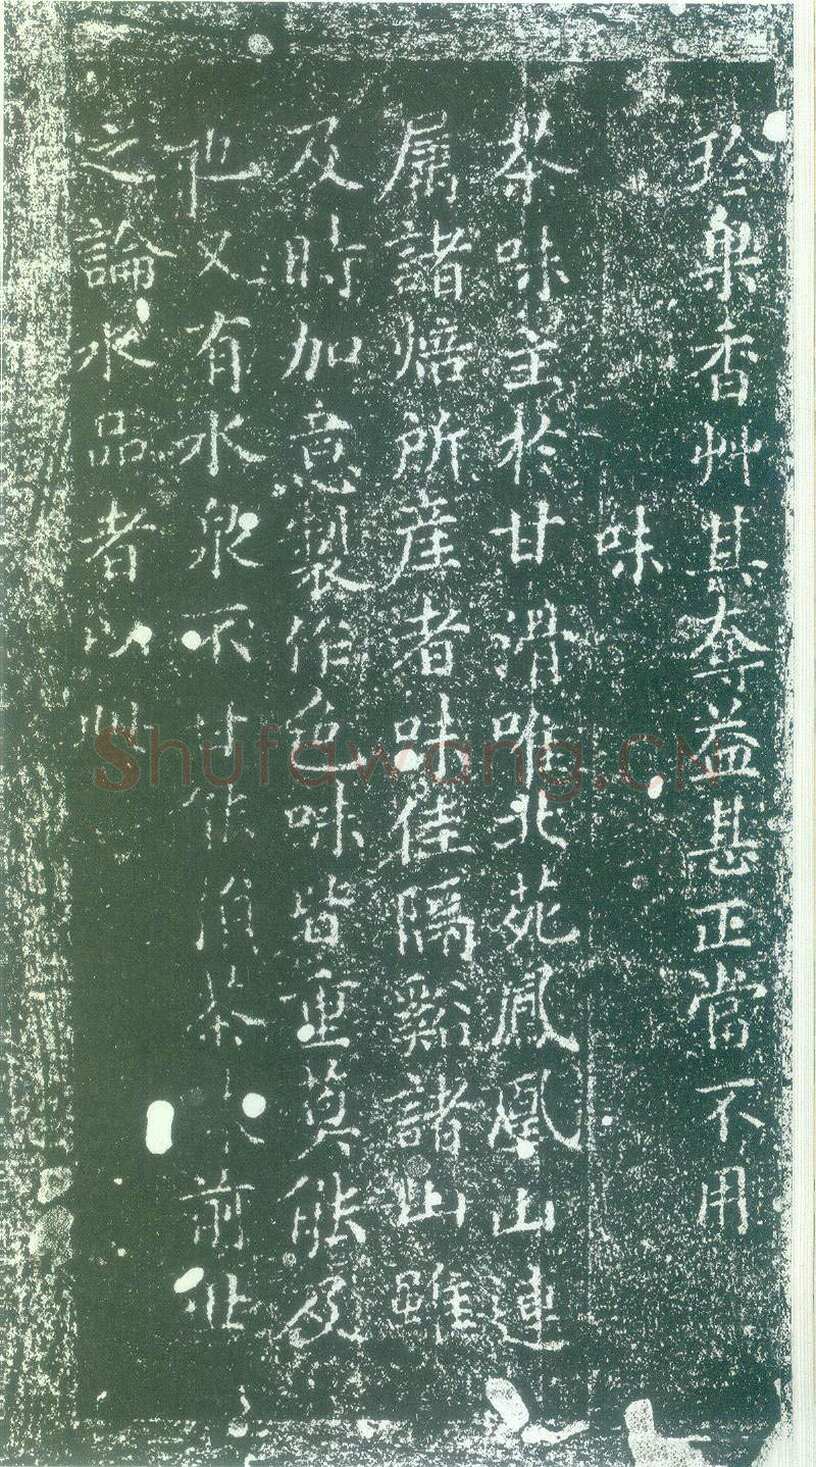 珍果香艸其奪益甚正當不用
味
茶味主於甘滑唯北苑鳳凰山連
屬諸焙所産者味佳隔谿諸山雖
及時加意製作色味皆重莫能及
也又有水泉不甘能損茶味前世
之論水品者以此
Shufawang.CN